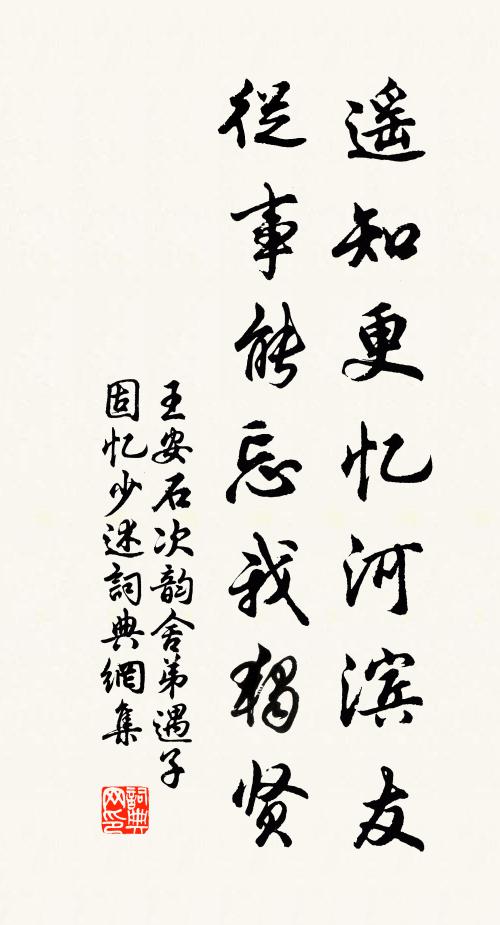 遥知更忆河滨友
從事能忘我獨贤
王安石次韵舍弟遇子
固忆少述詞典網集
詞典网印